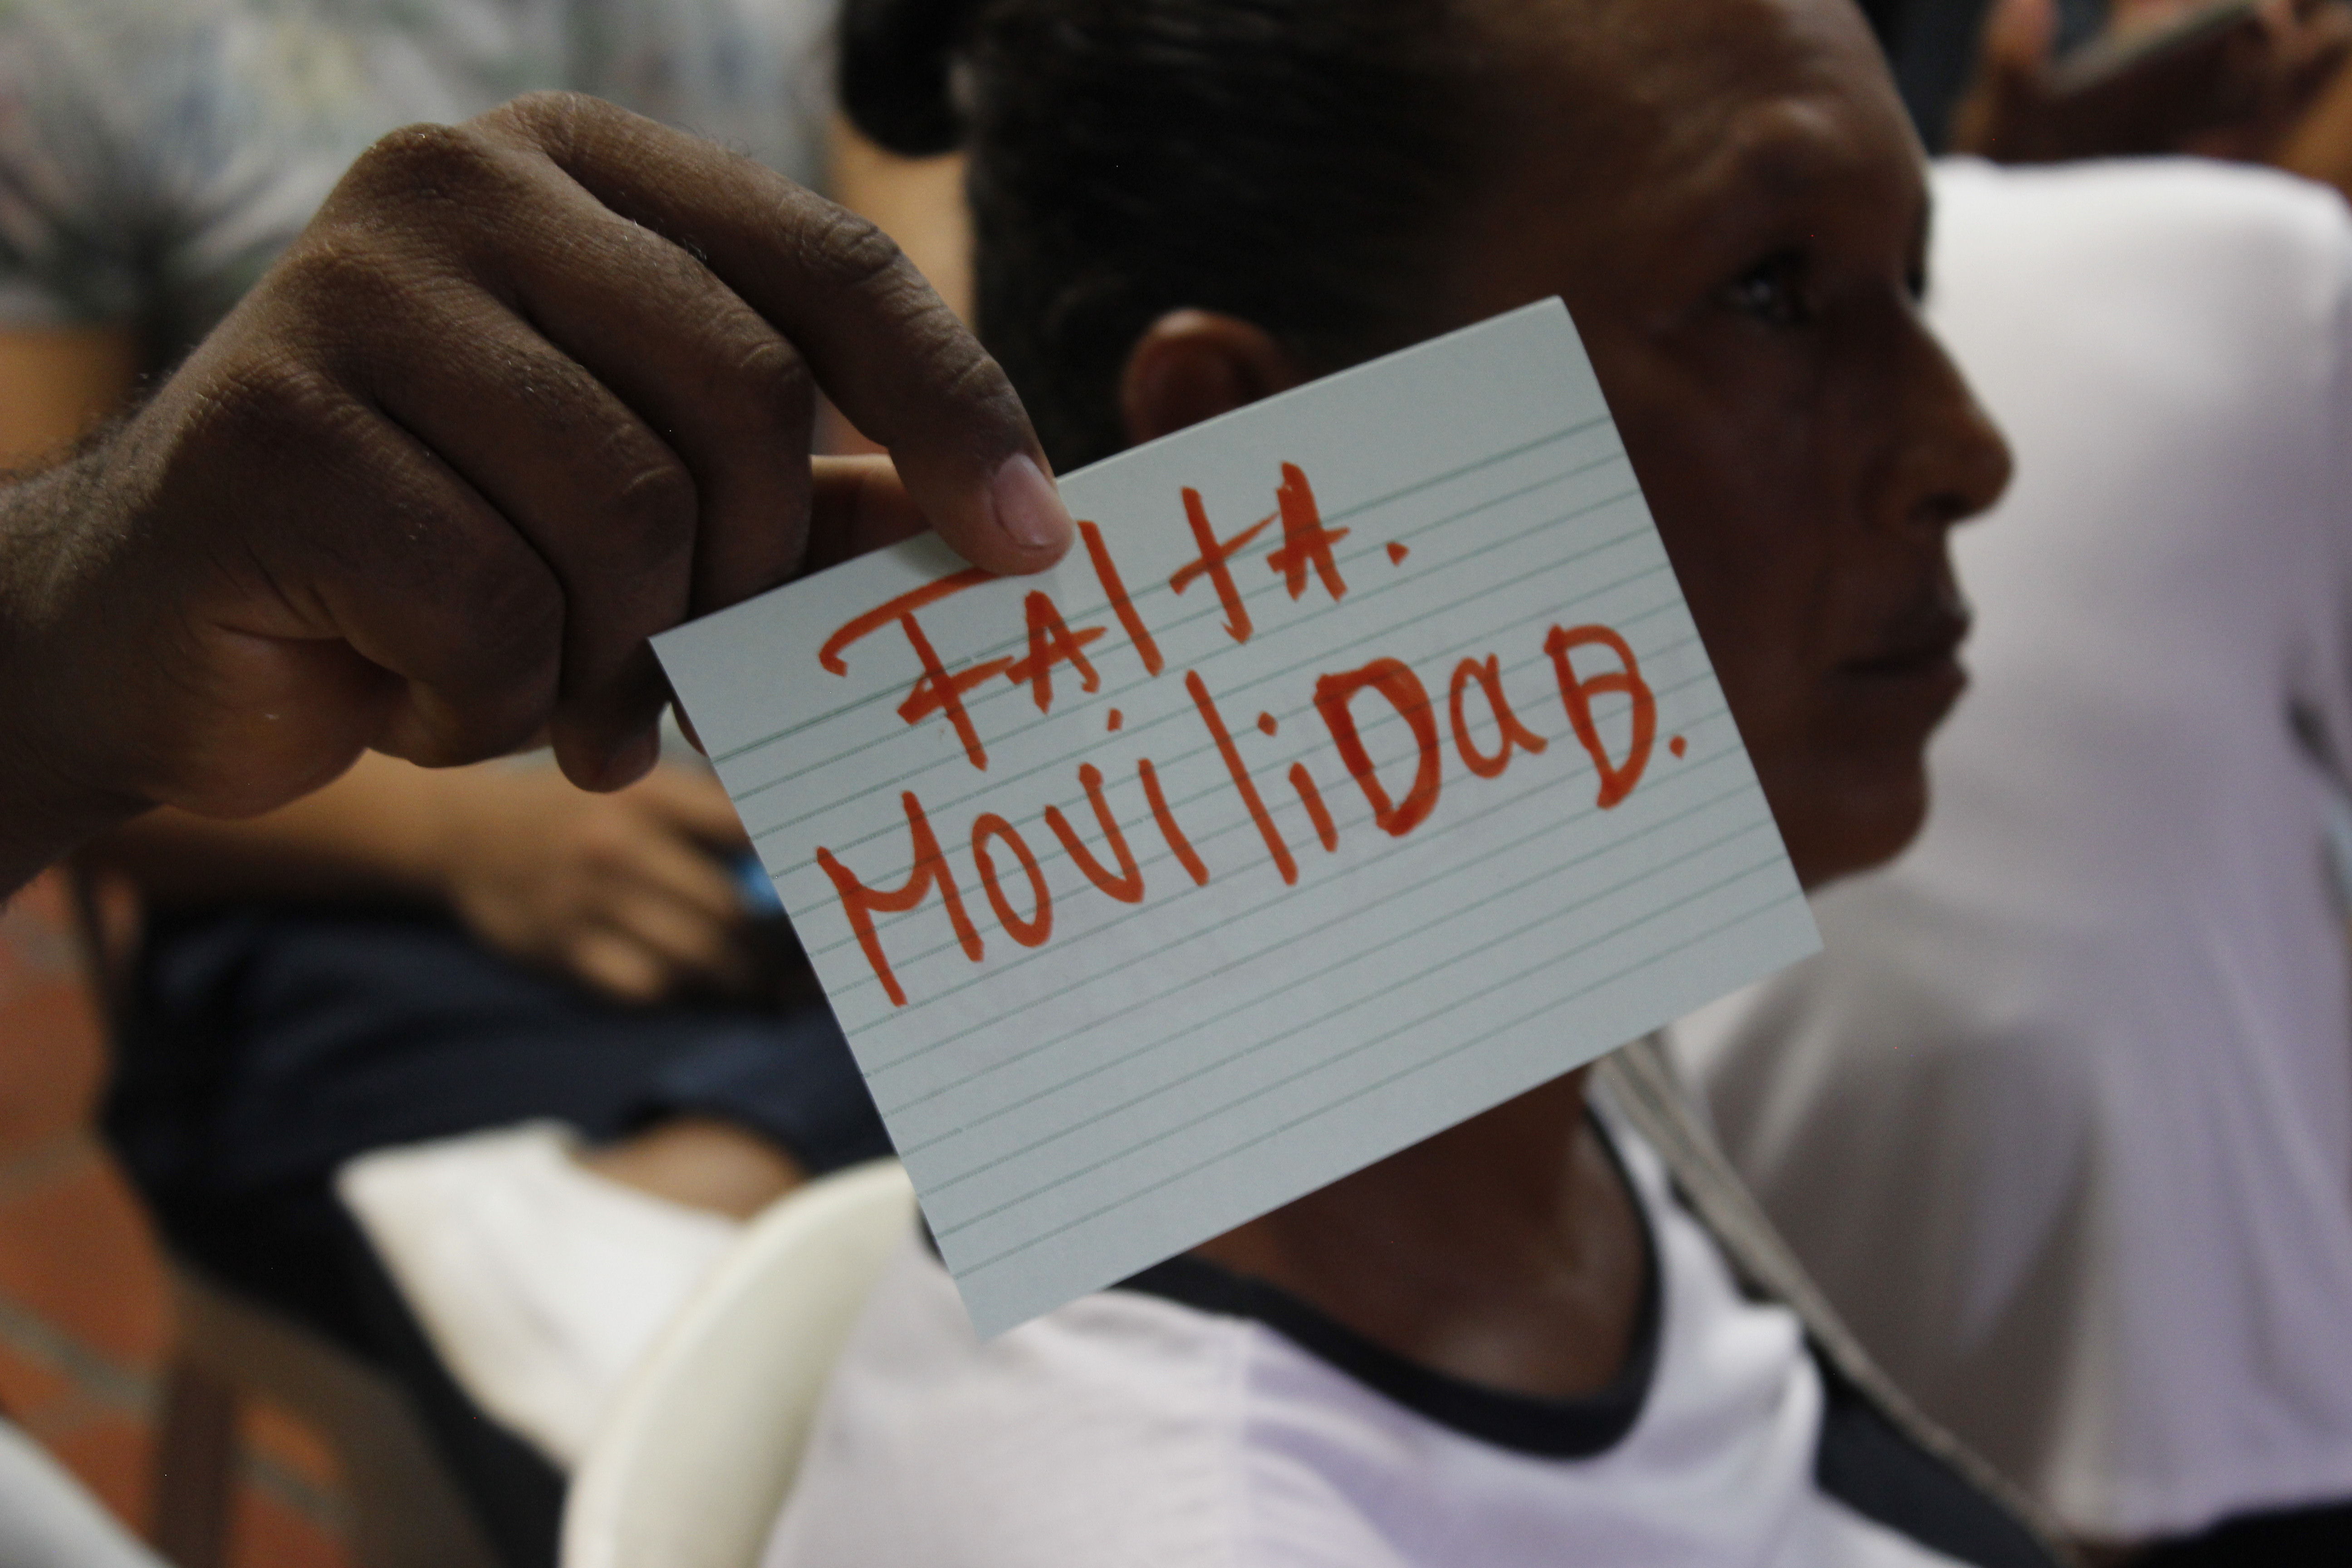 FAlTA.
MOViliDaD.